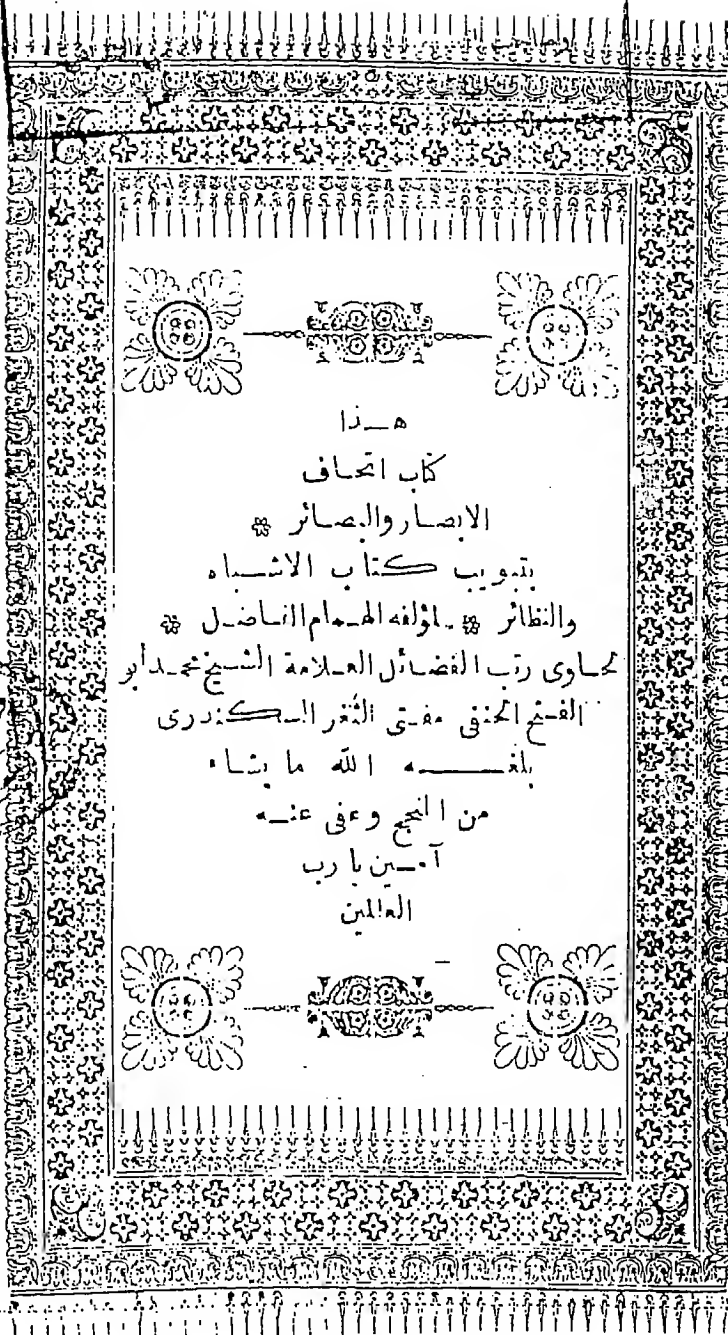 هذا
كتاب اتحاف
الابصار والبصائر
بتبويب كتاب الاشباه
والنظائر لمؤلفه الهمام الفاضل
الحاوى رتب الفضائل العلامة الشيخ محمد أبو
الفتح الحنفى مفتى الثغر السكندرى
بلغه الله ما يشاء
من النجح وعفى عنه
آمين يا رب
العالمين